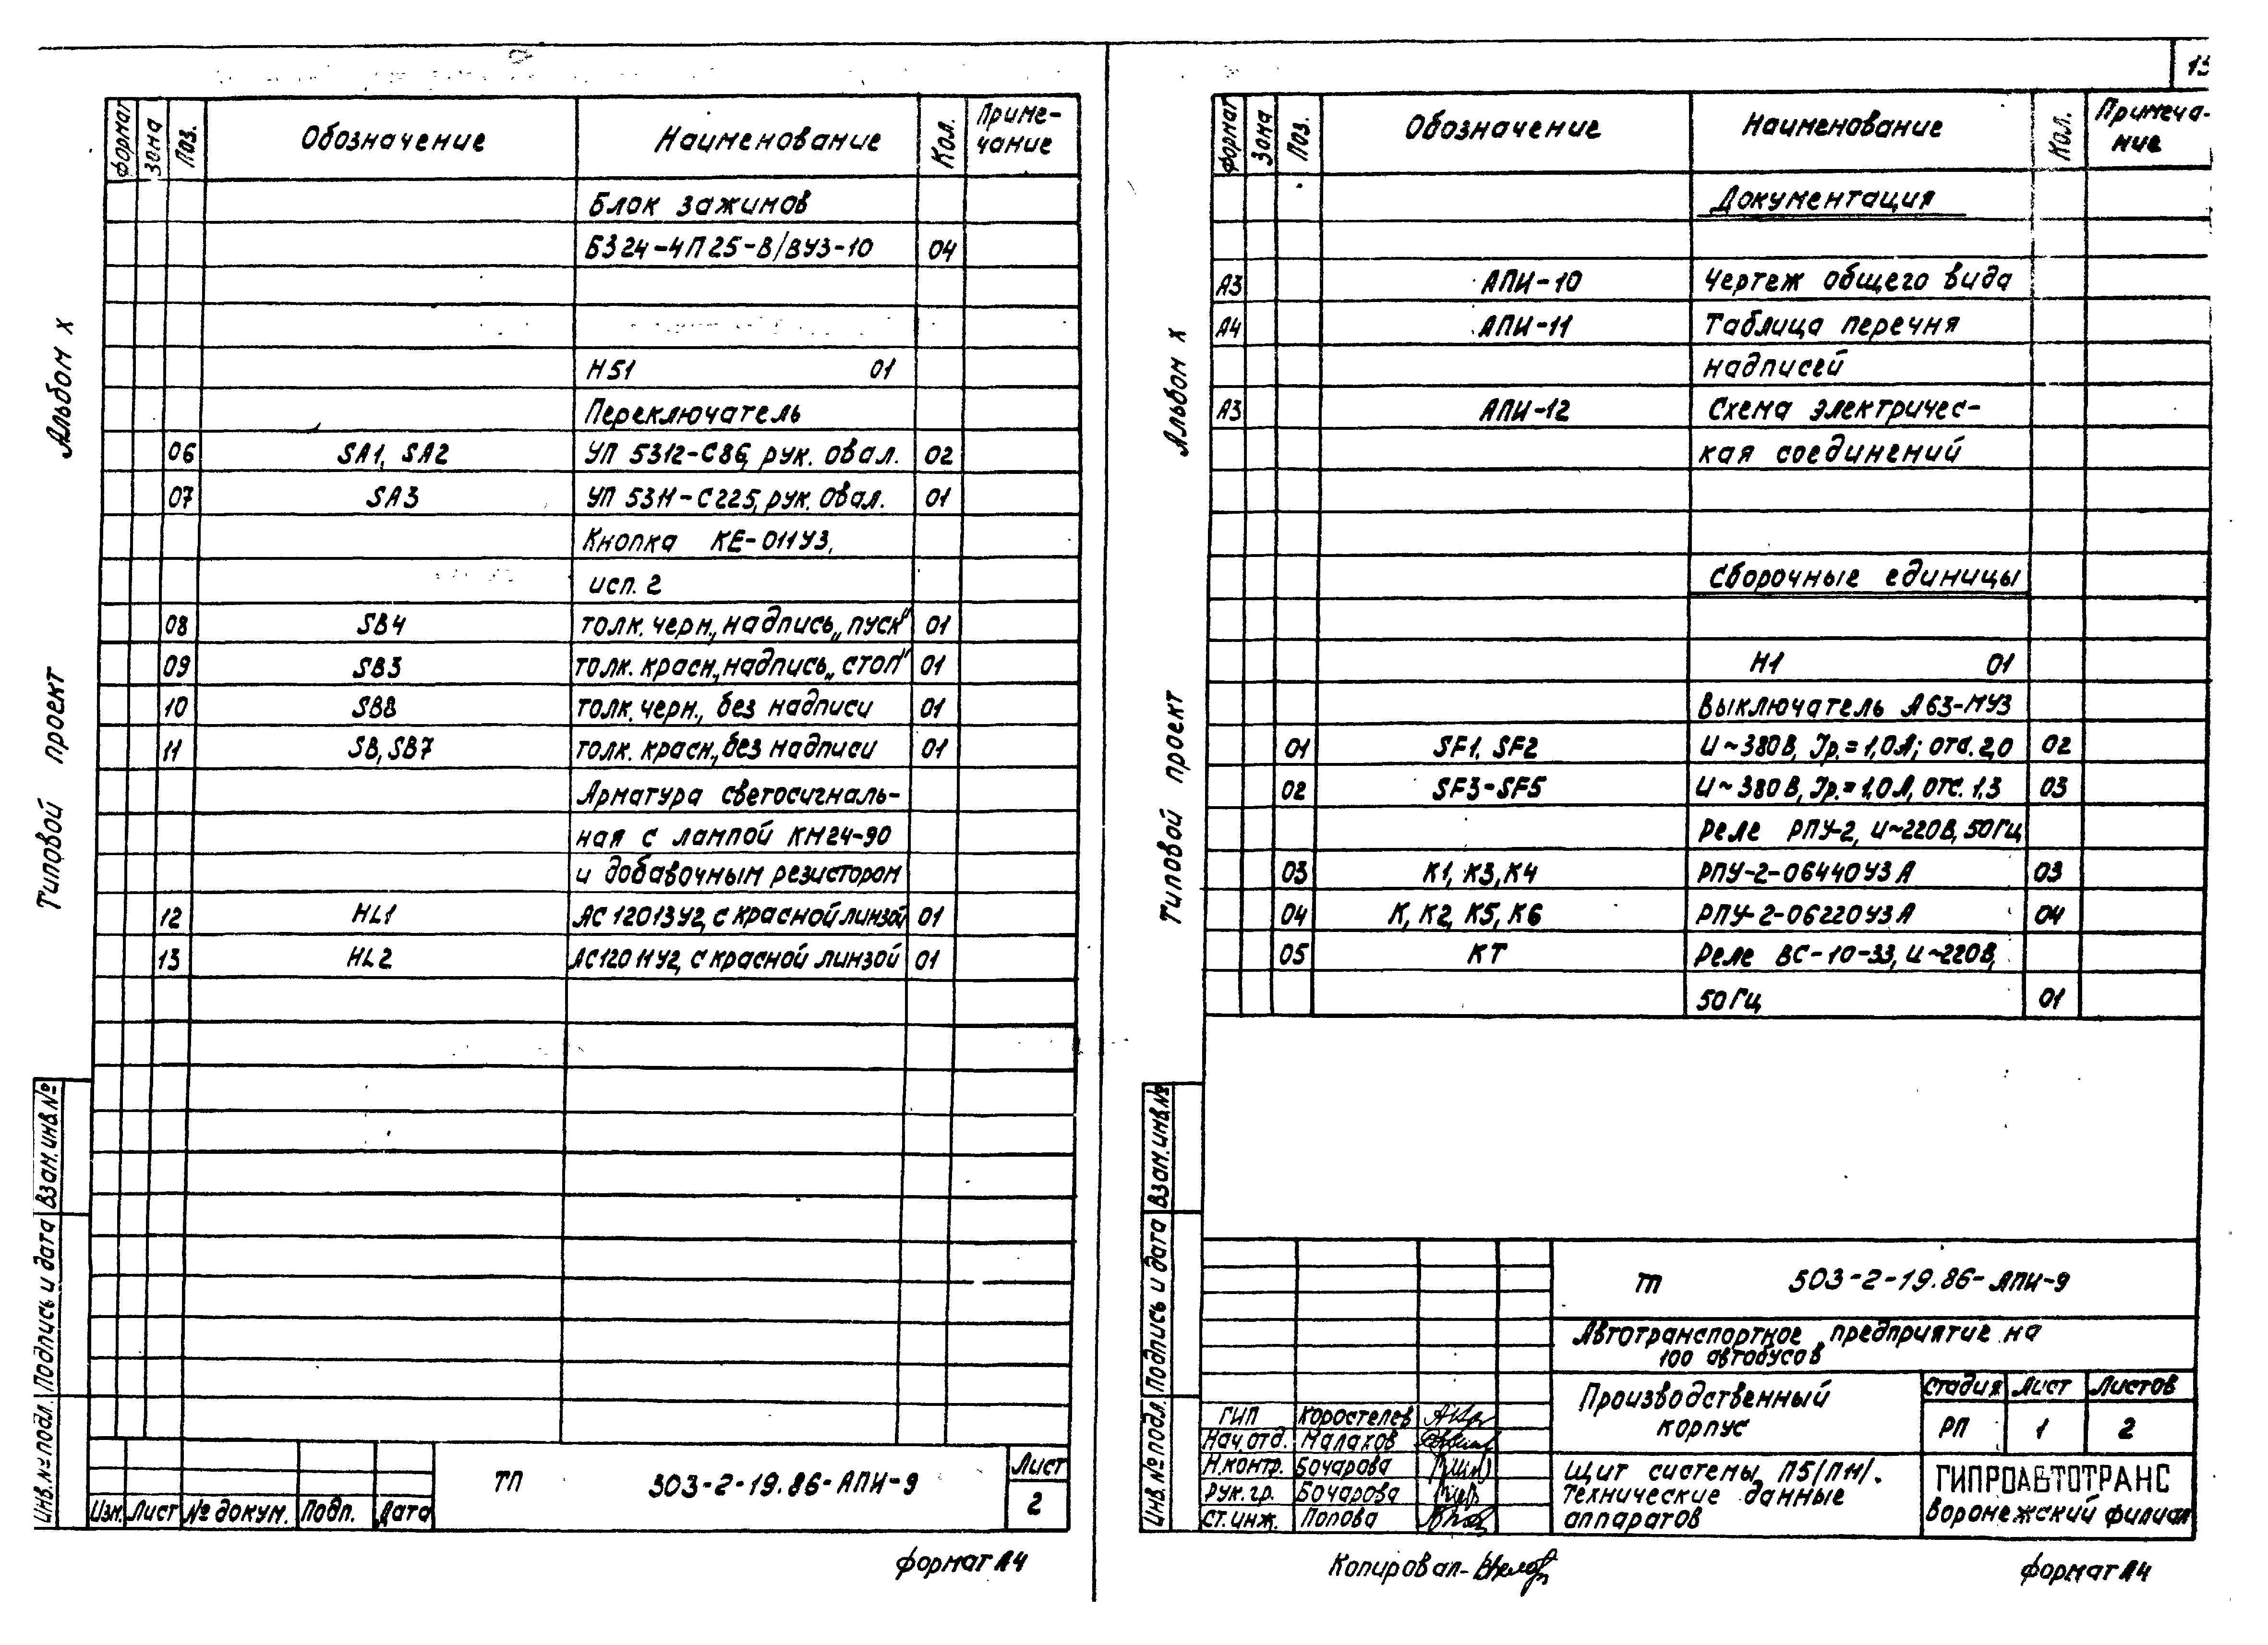 Формат Зона Поз. Обозначение Наименование Кол. Приме-
чание
Блок зажимов
БЗ24-4П25-В/ВУЗ-10 04
Н51 01
Переключатель
06 SA1, SA2 УП 5312-С86, рук. овал. 02
07 SA3 УП 5311-С225, рук. овал. 01
Кнопка КЕ-011У3,
исп. 2
08 SB4 толк. черн., надпись „пуск" 01
09 SB3 толк. красн., надпись „стоп" 01
10 SB8 толк. черн., без надписи 01
11 SB, SB7 толк. красн., без надписи 01
Арматура светосигналь-
ная с лампой КМ24-90
и добавочным резистором
12 HL1 АС12013У2, с красной линзой 01
13 HL2 АС12011У2, с красной линзой 01
Альбом X
Типовой проект
Взам. инв. №
Подпись и дата
Инв. № подл.
Изм. Лист № докум. Подп. Дата
ТП 503-2-19.86-АПИ-9
Лист
2
формат А4
13
Формат Зона Поз. Обозначение Наименование Кол. Примеча-
ние
Документация
А3 АПИ-10 Чертеж общего вида
А4 АПИ-11 Таблица перечня
надписей
А3 АПИ-12 Схема электричес-
кая соединений
Сборочные единицы
Н1 01
Выключатель А63-МУ3
01 SF1, SF2 U~380В, Iр.=1,0А; отс. 2,0 02
02 SF3-SF5 U~380В, Iр.=1,0А, отс. 1,3 03
Реле РПУ-2, U~220В, 50Гц
03 К1, К3, К4 РПУ-2-06440У3А 03
04 К, К2, К5, К6 РПУ-2-06220У3А 04
05 КТ Реле ВС-10-33, U~220В,
50Гц 01
Альбом X
Типовой проект
Взам. инв. №
Подпись и дата
Инв. № подл.
тп 503-2-19.86-АПИ-9
Автотранспортное предприятие на
100 автобусов
Производственный
корпус
Стадия Лист Листов
РП 1 2
ГИП Коростелев
Нач. отд. Малахов
Н.контр. Бочарова
Рук. гр. Бочарова
Ст. инж. Попова
Щит системы П5/ПН/.
Технические данные
аппаратов
ГИПРОАВТОТРАНС
Воронежский филиал
Копировал-
формат А4